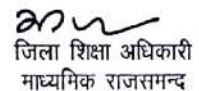 जिला शिक्षा अधिकारी
माध्यमिक राजसमन्द